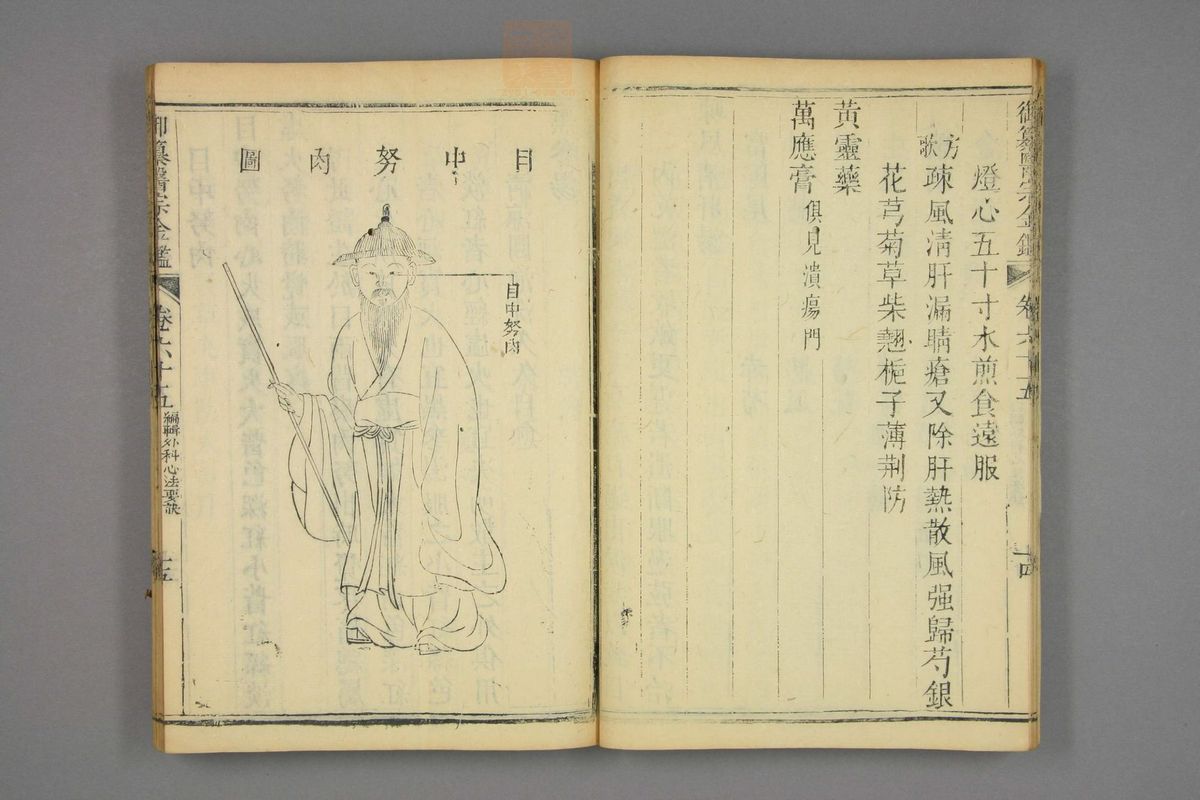 御纂醫宗金鑑 卷六十五 十四
燈心五十寸水煎食遠服
方歌
疎風清肝漏睛瘡又除肝熱散風强歸芍銀
花芎菊草柴翹梔子薄荆防
黃靈藥
萬應膏俱見潰瘍門
目中努肉圖
目中努肉
御纂醫宗金鑑 卷六十五 編輯外科心法要訣 十五